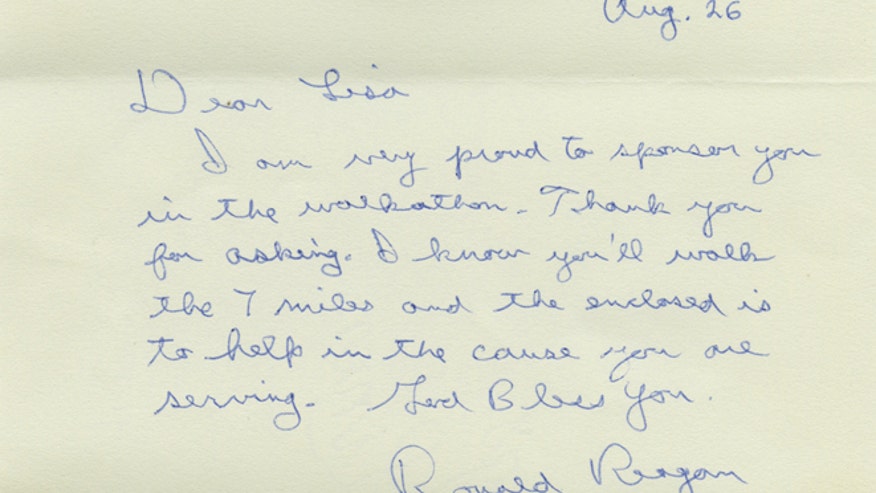 Aug. 26
Dear Lisa
I am very proud to sponsor you
in the walkathon. Thank you
for asking. I know you'll walk
the 7 miles and the enclosed is
to help in the cause you are
serving. God Bless You.
Ronald Reagan